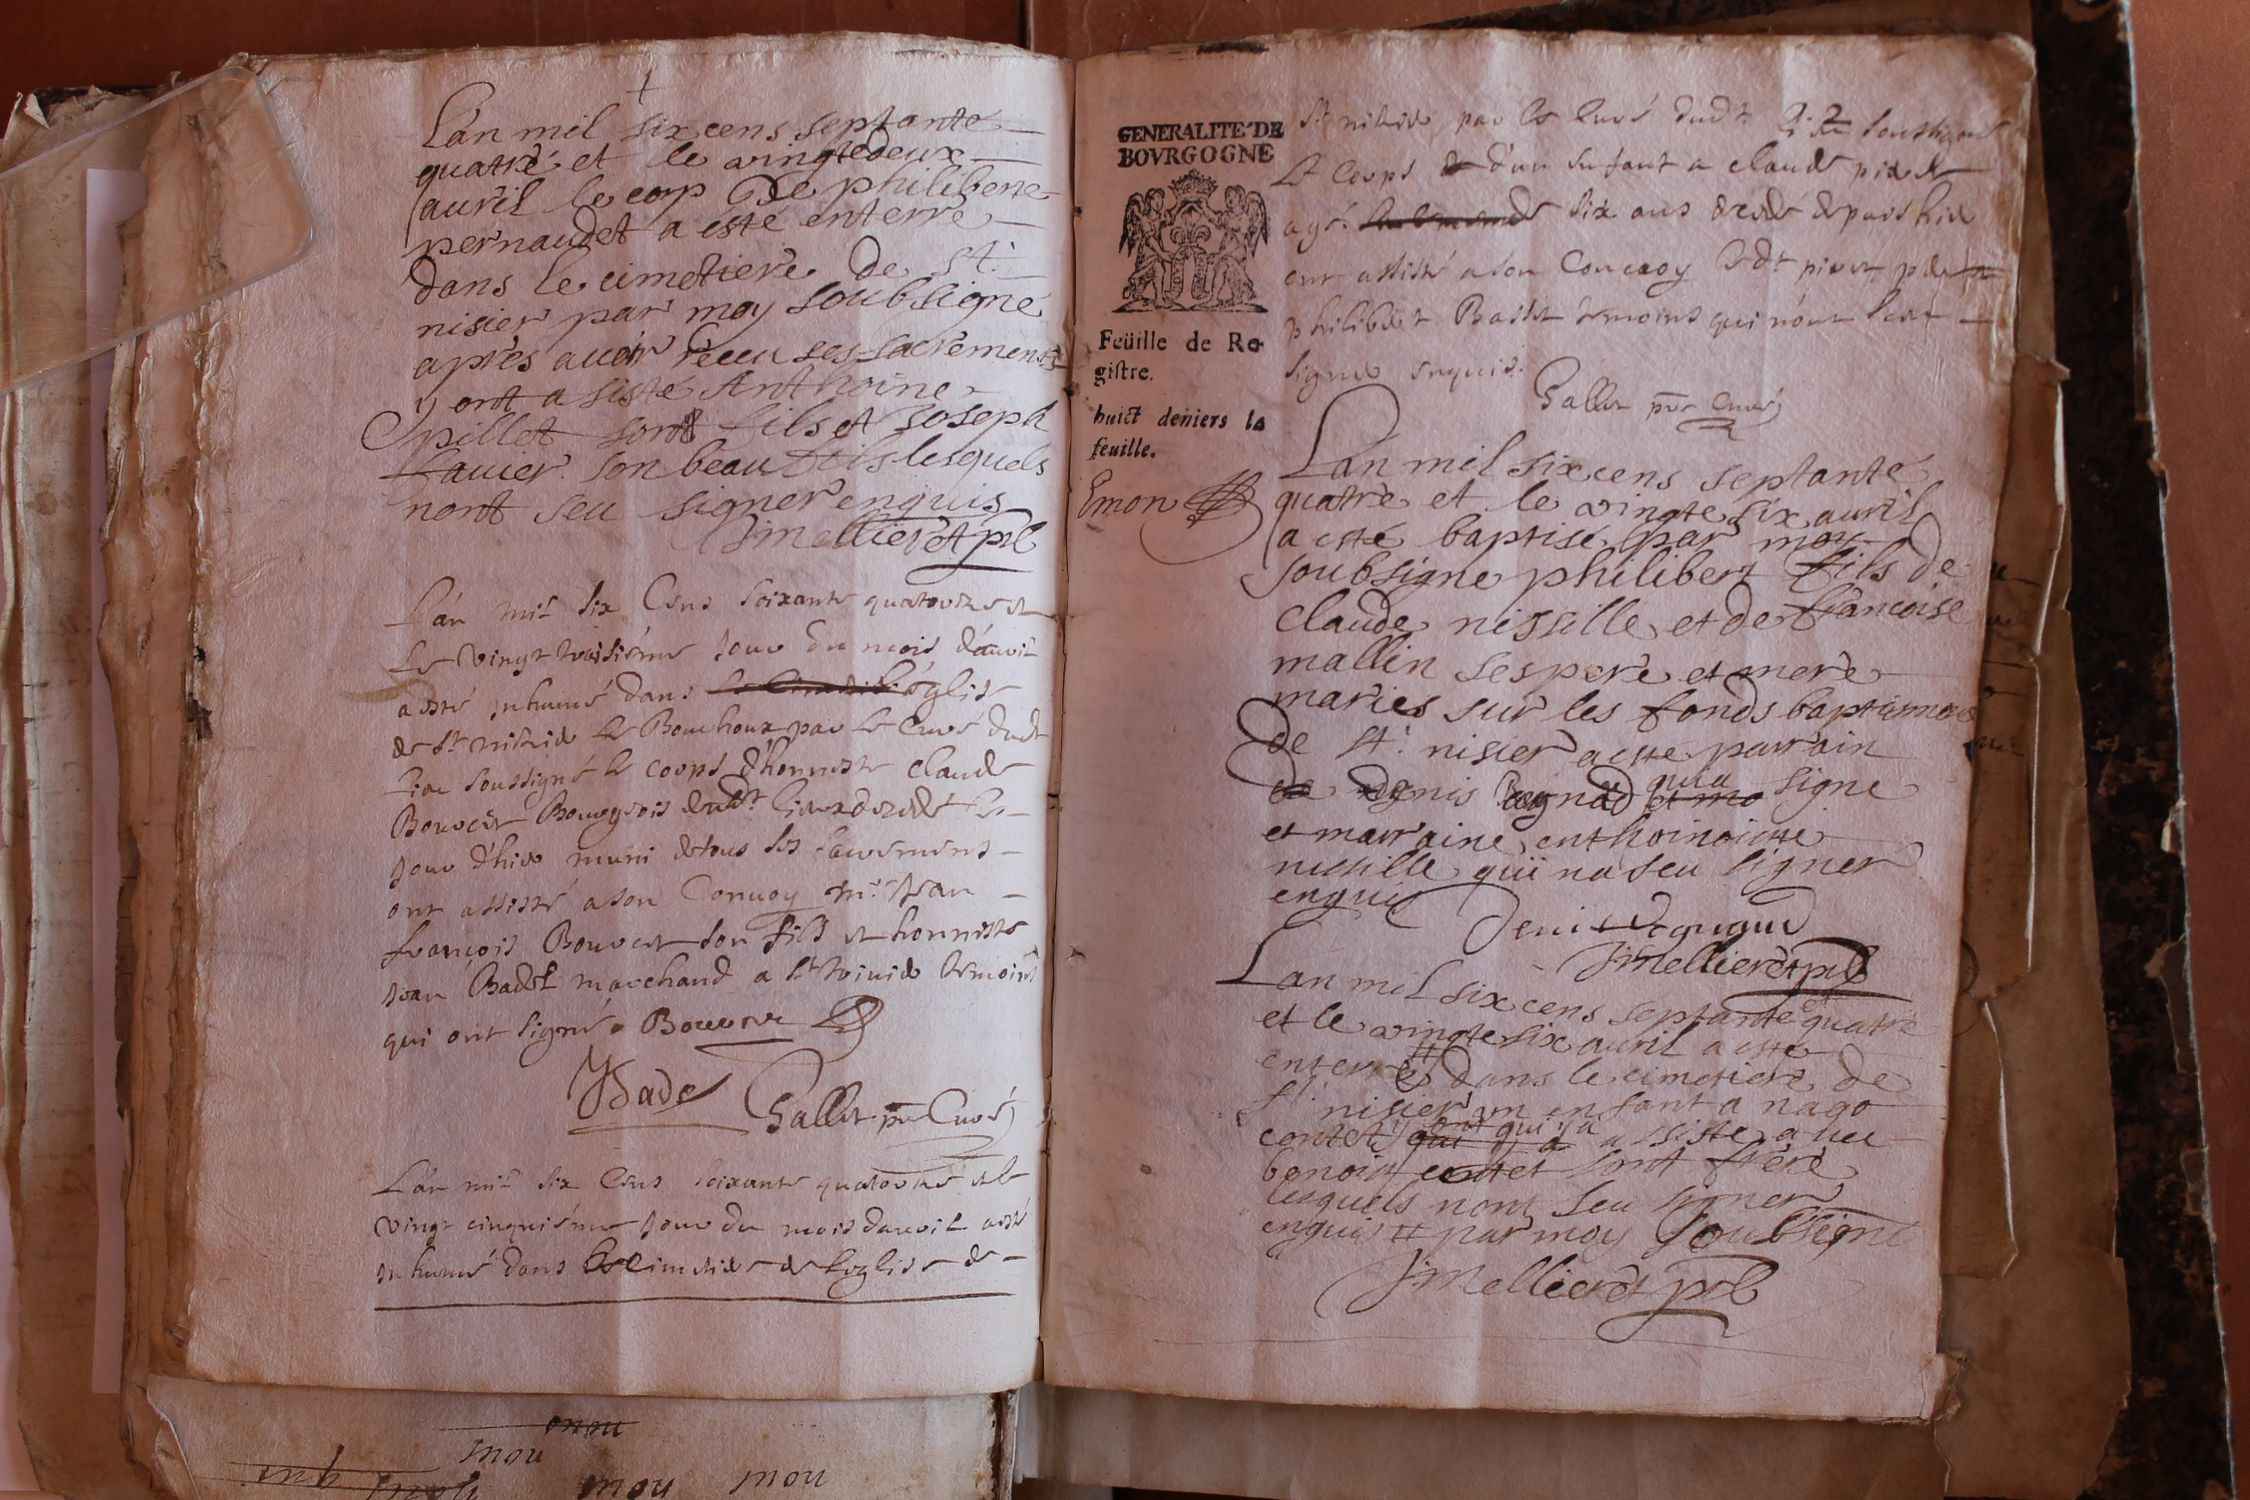 Lan mil six cens septante
quatre et le vingtedeux
auril le corp De philiberte
pernaudet a esté enterré
dans le cimetiere de St.
nisier par moy soubsigné
apres auoir receu ses sacremens
y ont asisté Anthoine
pillet sont fils et Joseph
fauier son beau fils lesquels
nont seu signer enquis
JMellieret pb
L'an mil six Cens soixante quatorze et
le vingt troisiéme jour du mois d'auril
a esté inhumé dans l'église
de St nisier le Bouchoux par le Curé dudt
lieu soussigné le corps d'honneste Claude
Bouuet Bourgeois dudt lieu decedé le
jour d'hier muni de tous ses sacremens
ont assisté a son Conuoy mr. jean
françois Bouuet son fils et honneste
jean Badet marchand a St triuier temoins
qui ont signé Bouuet
JBadet
Gallet ptre Curé
L'an mil six Cens soixante quatorze et le
vingt cinquiéme jour du mois dauril a esté
inhumé dans le cimetiere de leglise de
onou
mou
mou mou
GENERALITE' DE
BOVRGOGNE
Feüille de Re-
gistre.
huict deniers la
feuille.
Emon
St nisier par le Curé dudt lieu soussigné
le corps d'un enfant a claude
agé de six ans decedé depuis hier
ont assisté a son Conuoy ledt
philibert temoins qui n'ont sceu
signer enquis.
Gallet ptre Curé
Lan mil six cens septante
quatre et le vingte six auril
a esté baptisé par moy
soubsigne philibert fils de
claude nissille et de francoise
mallin ses pere et mere
maries sur les fonds baptismaux
de St. nisier a esté parrain
denis qui a signe
et marraine enthoinoitte
nissille qui na seu signer
enquis
Denis
JMellieret pb
Lan mil six cens septante quatre
et le vingte six auril a este
enterré # dans le cimetiere de
St. nisier un enfant a
contet y a assiste auec
benoist contet sont frere
lesquels nont seu signer
enquis # par moy soubsigne
JMellieret pb